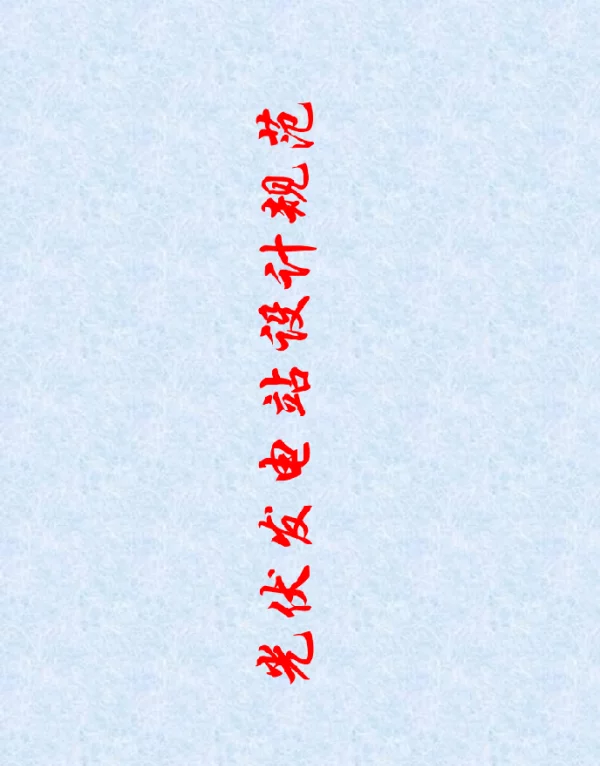 光伏发电站设计规范